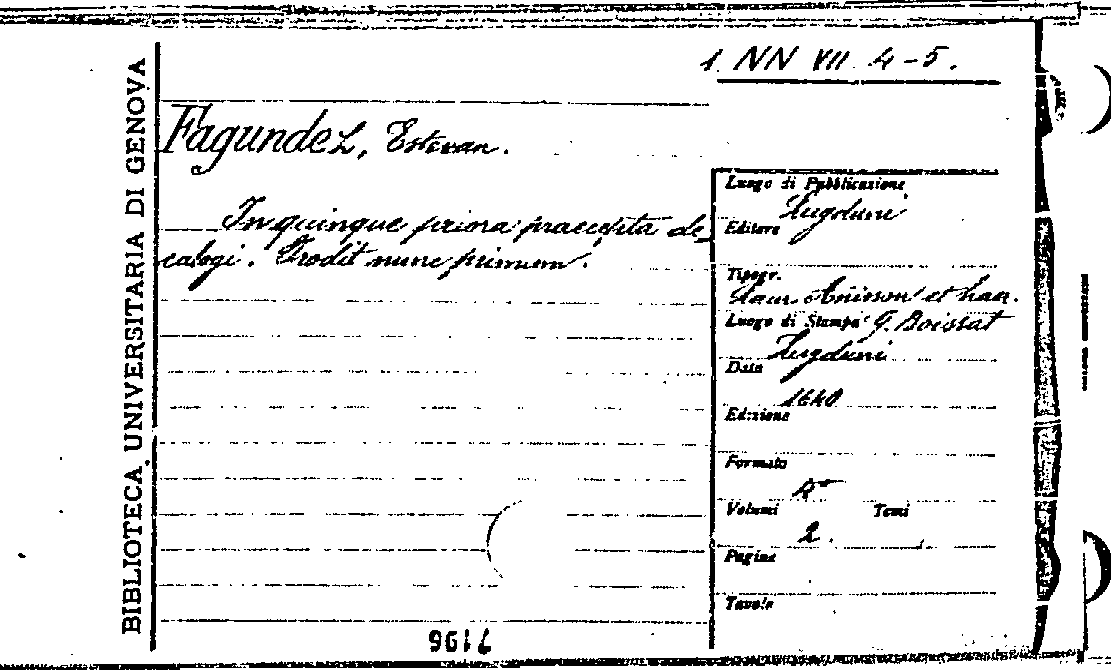 1 NN VII 4-5.
BIBLIOTECA UNIVERSITARIA DI GENOVA
Fagundez, Estevan.
In quinque priora praecepta de-
calogi. Prodit nunc primum.
Luogo di Pubblicazione
Lugduni
Editore
Tipogr.
Laur. Anisson et haer.
Luogo di Stampa G. Boissat
Lugduni
Data
1640
Edizione
Formato
Volumi Tomi
2.
Pagine
Tavole
7196